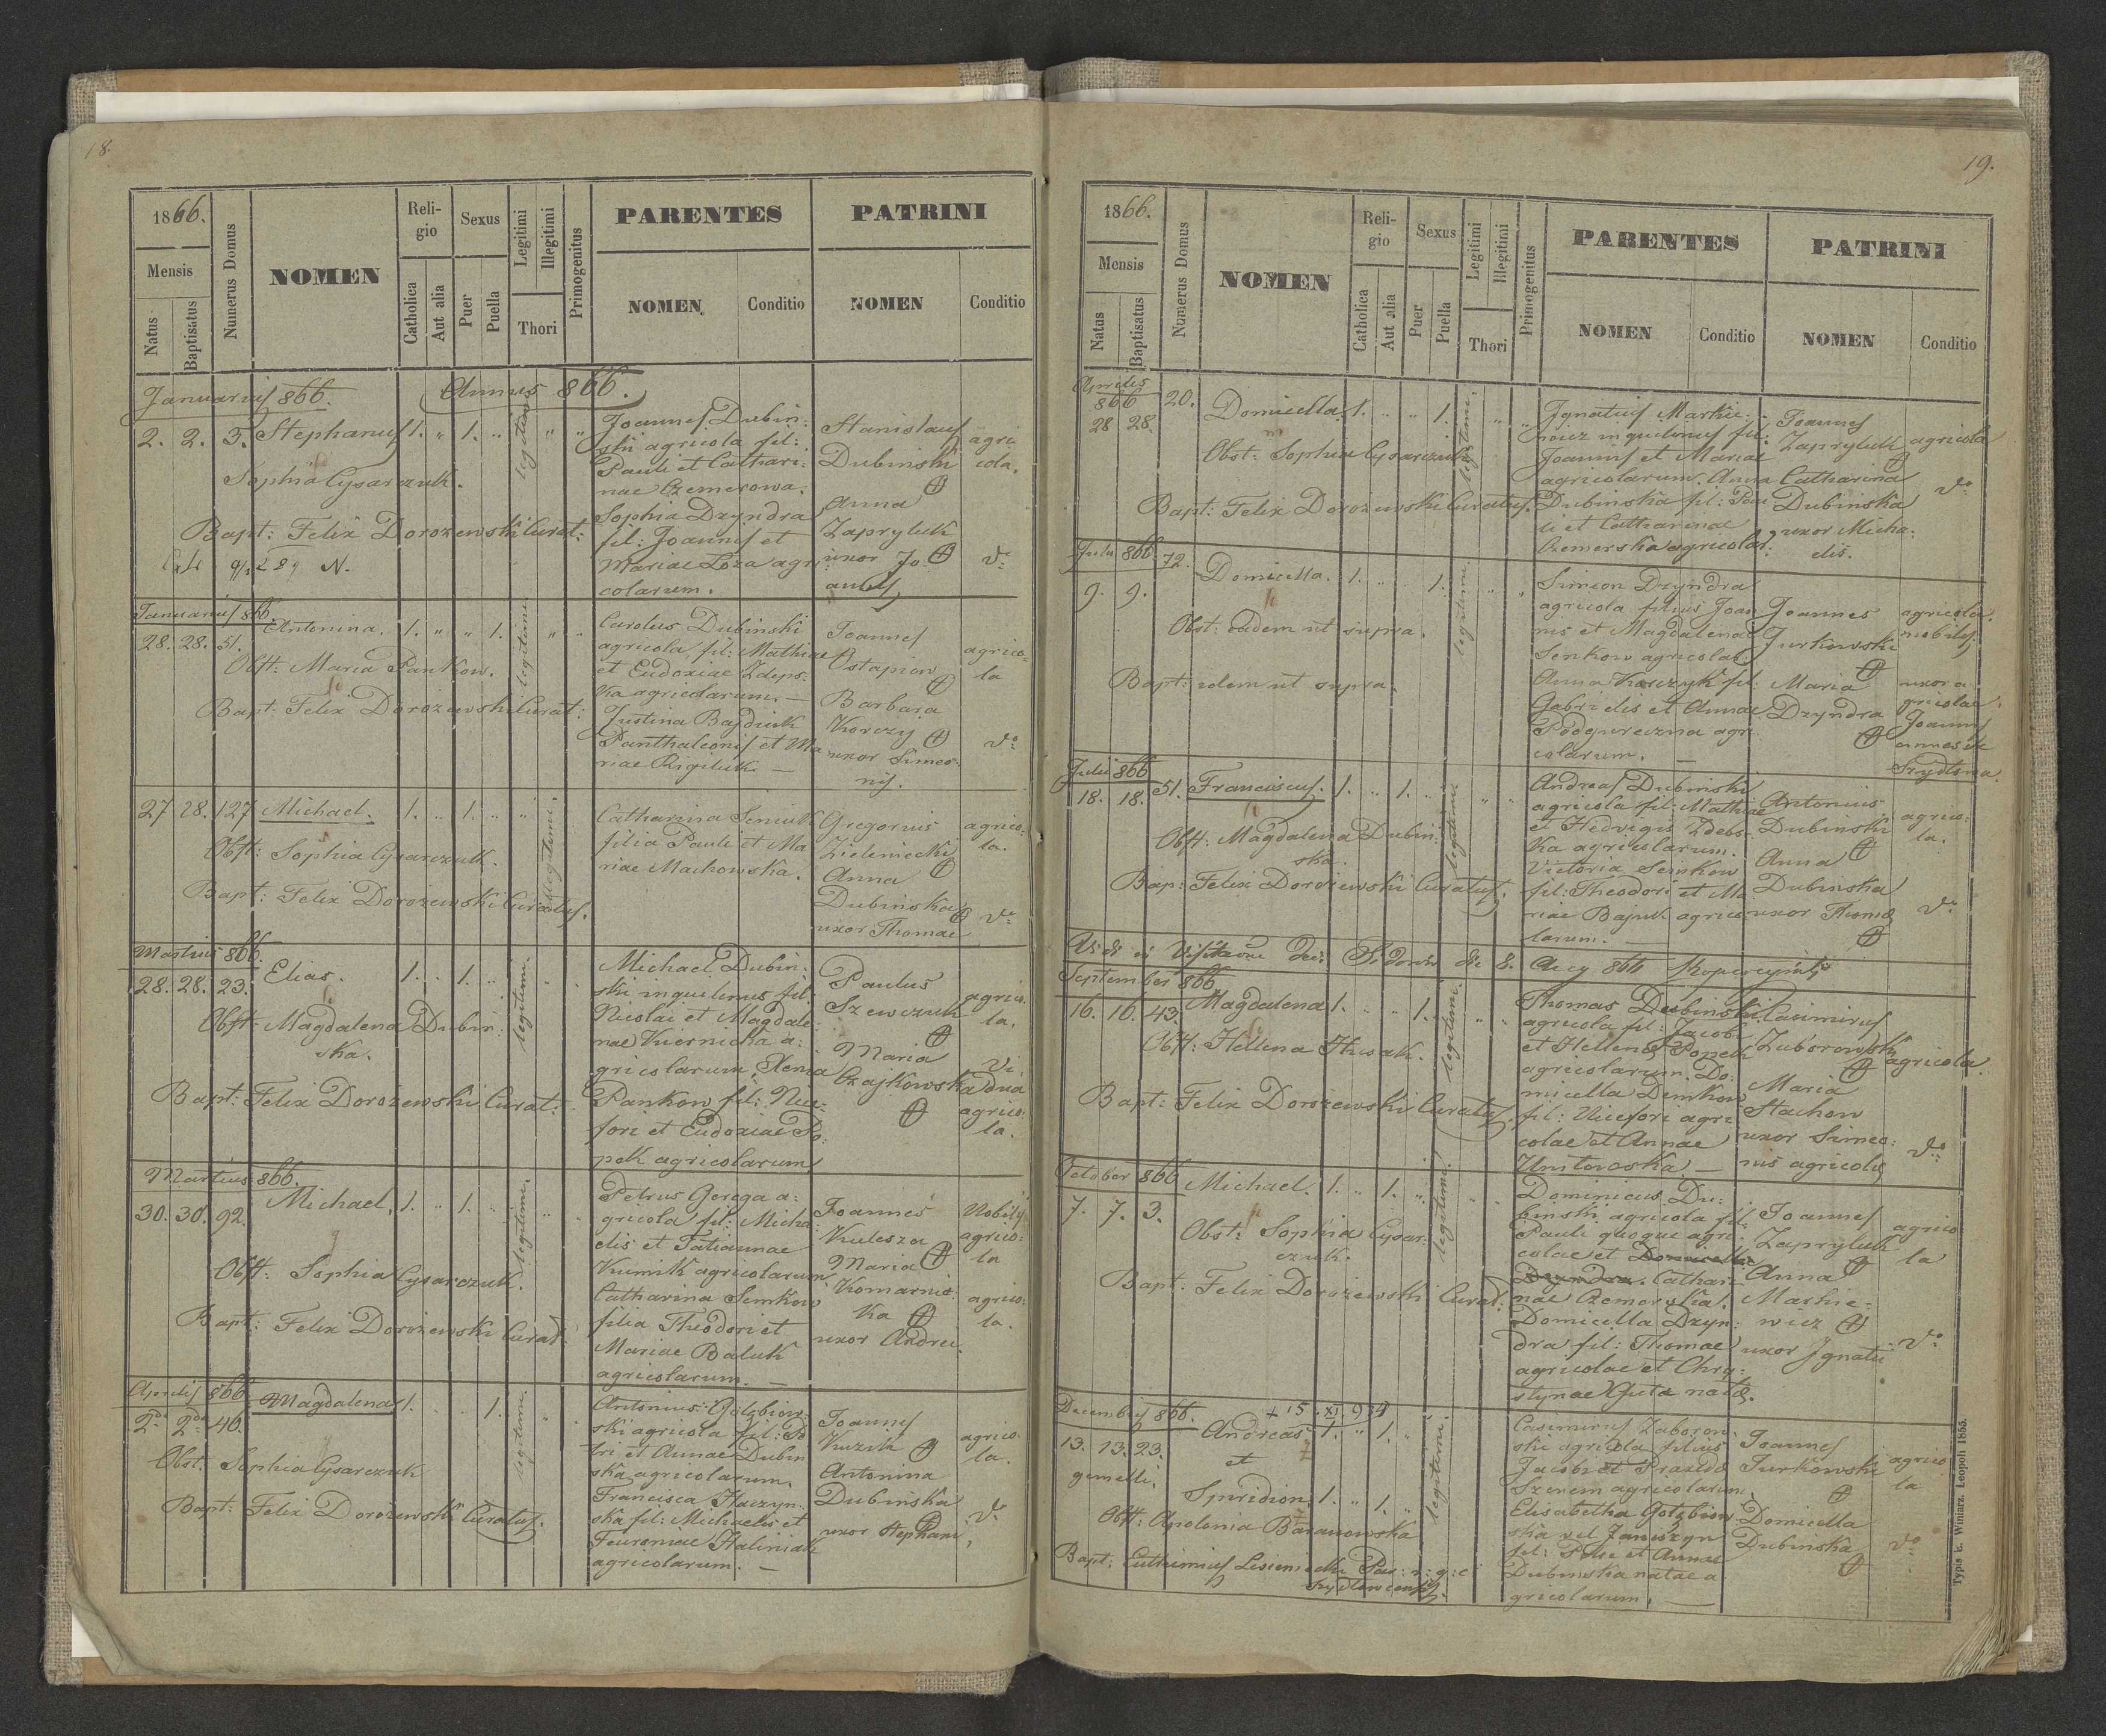 18.
1866.
Mensis
Natus
Baptisatus
Numerus Domus
NOMEN
Reli-
gio
Catholica
Aut alia
Sexus
Puer
Puella
Legitimi
Illegitimi
Thori
Primogenitus
PARENTES
NOMEN
Conditio
PATRINI
NOMEN
Conditio
Januarius 866. Annus 866.
2. 2. 5. Stephanus 1. " 1. " legitimi " "
Sophia Cysarczuk.
Bapt: Felix Dorożewski Curat:
Joannes Dubin:
ski agricola fil:
Pauli et Cathari:
nae Czemerowa.
Sophia Dzyndra
fil: Joannis et
Mariae Łoza agri
colarum.
Stanislaus
Dubinski
Anna
Zapryluk
uxor Jo
annis
agri
cola.
do
Januarius 866.
28. 28. 51. Antonina. 1. " " 1. legitimi " "
Obst: Maria Pankow.
Bapt: Felix Dorożewski Curat:
Carolus Dubinski
agricola fil: Mathiae
et Eudoxiae Zdeps:
ka agricolarum. —
Justina Bajdiuk
Panthaleonis et Ma
riae Rigiluk —
Joannes
Ostapiow
Barbara
Korczij
uxor Simeo:
nis.
agrico:
la
do
27 28. 127 Michael. 1. " 1. " " illegitimi.
Obst: Sophia Cysarczuk.
Bapt: Felix Dorożewski Curatus.
Catharina Seniuk
filia Pauli et Ma
riae Machowska.
Gregorius
Zieleniecki
Anna
Dubinska
uxor Thomae
agrico:
la.
do
Martius 866.
28. 28. 23. Elias. 1. " 1. " legitimi.
Obst: Magdalena Dubin:
ska.
Bapt: Felix Dorożewski Curat:
Michael Dubin:
ski inquilinus fil:
Nicolai et Magdale:
nae Kiernicka a:
gricolarum. Xenia
Pankow fil: Nici:
fori et Eudoxiae Po:
pek agricolarum
Paulus
Szewczuk
Maria
Czajkowska
agrico
la.
vi
dua
agrico:
la.
Martius 866.
30. 30. 92. Michael. 1. " 1. " legitimi. " "
Obst: Sophia Cysarczuk.
Bapt: Felix Dorożewski Curat:
Petrus Gerega a:
gricola fil: Micha:
elis et Tatiannae
Kuimik agricolarum
Catharina Semkow
filia Theodori et
Mariae Baluk
agricolarum. —
Joannes
Kulesza
Maria
Komarnic:
ka
uxor Andrei.
Nobilis
agrico:
la
agrico:
la.
Aprilis 866
2da 2da 46. Magdalena 1. 1. legitimi. "
Obst. Sophia Cysarczuk
Bapt: Felix Dorożewski Curatus.
Antonius Gołębiow:
ski agricola fil: Pe
tri et Annae Dubin
ska agricolarum.
Francisca Haczyn:
ska fil: Michaelis et
Feuroniae Haliniak
agricolarum. —
Joannes
Kuzik
Antonina
Dubinska
uxor Stephani,
agrico:
la.
do
19.
1866.
Mensis
Natus
Baptisatus
Numerus Domus
NOMEN
Reli-
gio
Catholica
Aut alia
Sexus
Puer
Puella
Legitimi
Illegitimi
Thori
Primogenitus
PARENTES
NOMEN
Conditio
PATRINI
NOMEN
Conditio
Aprilis
866
28 28. 20. Domicella 1. " " 1. legitimi. " "
Obst: Sophia Cysarczuk
Bapt: Felix Dorożewski Curatus.
Ignatius Markie:
wicz inquilinus fil:
Joannis et Mariae
agricolarum. Anna
Dubinska fil: Pau
li et Catharinae
Czemerska agricolar:
Joannes
Zapryluk
Catharina
Dubinska
uxor Micha:
elis.
agricola
do
Julii 866.
9. 9. 72. Domicella. 1. " 1. legitimi. " "
Obst: eadem ut supra.
Bapt: idem ut supra.
Simeon Dzyndra
agricola filius Joan
nis et Magdalenae
Senkow agricolar.
Anna Korczyk fil:
Gabrielis et Annae
Podgureczna agri
colarum. —
Joannes
Jurkowski
Maria
Dzyndra
agricola
nobilis,
uxor a
gricolae
Joannis
Szydłowa.
Julii 866
18. 18. 51. Franciscus. 1. " 1. " legitimi " "
Obst: Magdalena Dubin:
ska.
Bap: Felix Dorożewski Curatus.
Andreas Dubinski
agricola fil: Mathiae
et Hedvigis Zdebs:
ka agricolarum.
Victoria Semkow
fil: Theodori et Ma
riae Bajuk agrico
larum. —
Antonius
Dubinski
Anna
Dubinska
uxor Thomae
agrico:
la.
do
September 866
16. 16. 43. Magdalena 1. " " 1. legitimi. " "
Obst: Hellena Husak.
Bapt: Felix Dorożewski Curatus.
Thomas Dubinski
agricola fil: Jacobi
et Hellenae Popek
agricolarum. Do:
micella Demkow
fil: Nicefori agri
colae et Annae
Unitowska —
Casimirus
Zuborowski
Maria
Stachow
uxor Simeo:
nis agricola
agricola.
do
October 866
7. 7. 3. Michael. 1. " 1. " legitimi. " "
Obst: Sophia Cysar:
czuk.
Bapt: Felix Dorożewski Curat:
Dominicus Du:
binski agricola fil:
Pauli quoque agri:
colae et Domicella
Dzyndra. Cathari
nae Czemerska.
Domicella Dzyn:
dra fil: Thomae
agricolae et Chry:
stynae Guta natae.
Joannes
Zapryluk
Anna
Markie:
wicz
uxor Ignatii
agrico
la
do
Decembris 866. + 15. XI. 934
13. 13. 23. Andreas 1. " 1. " legitimi.
gemelli. et
Spiridion 1. " 1. "
Obst: Apolonia Baranowska
Bapt: Euthimius Lesieniecki Par: r: g: c:
Casimirus Zaborow:
ski agricola filius
Jacobi et Praxed
Szenem agricolarum.
Elisabetha Gołębiow
ska vel Janiszyn
fil: Petri et Annae
Dubinska natae a
gricolarum. —
Joannes
Jurkowski
Domicella
Dubinska
agrico
la
do
Typis E. Winiarz. Leopoli 1855.